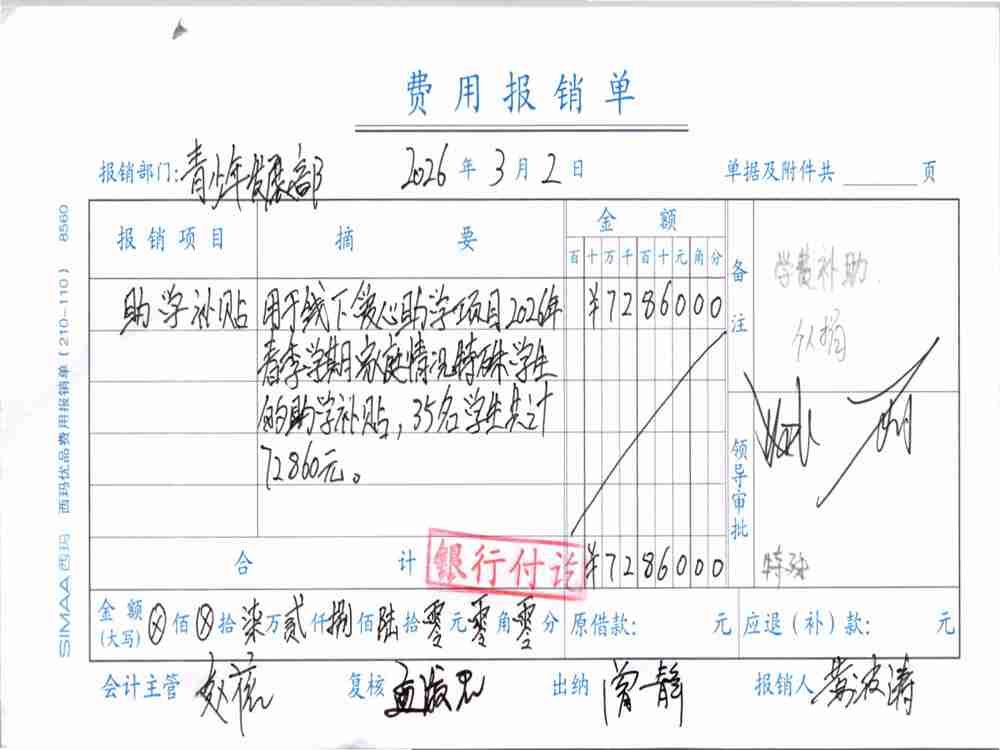 费用报销单
报销部门:青少年发展部 2026年3月2日 单据及附件共 页
报销项目 摘要 金额
百十万千百十元角分
备注
学费补助
个人捐
助学补贴 用于线下爱心助学项目2026年 ¥7286000
春季学期家庭情况特殊学生
的助学补贴,35名学生共计
72860元。
领导审批
特殊
合计 银行付讫 ¥7286000
金额(大写) ⊗佰⊗拾柒万贰仟捌佰陆拾零元零角零分 原借款: 元 应退(补)款: 元
会计主管 复核 出纳 曾静 报销人
SIMAA西玛 西玛优品费用报销单(210-110) 8560